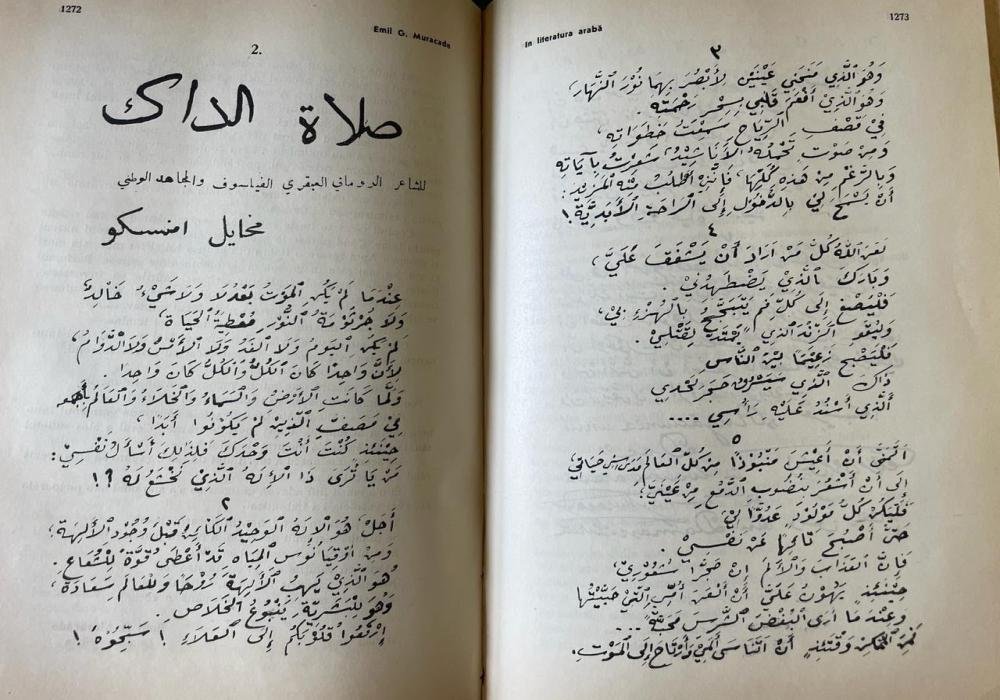 1272
Emil G. Muracade
2.
صلاة الداك
للشاعر الروماني العبقري الفياسوف والمجاهد الوطني
مخايل امنسكو
عِنْدَمَا لَمْ يَكُنِ المَوْتُ بَعْدُ لَا وَلَا شَيْءٌ خَالِدٌ
وَلَا جُرْثُومَةُ النُّورِ مُعْطِيَةُ الحَيَاةِ،
لَمْ يَكُنِ اليَوْمُ وَلَا الغَدُ وَلَا الأَمْسُ وَلَا الدَّوَامُ،
لِأَنَّ وَاحِدًا كَانَ الكُلُّ وَالكُلُّ كَانَ وَاحِدًا.
وَلَمَّا كَانَتِ الأَرْضُ وَالسَّمَاءُ وَالخَلَاءُ وَالعَالَمُ بِأَجْمَعِهِ
فِي مَصَفِّ الَّذِينَ لَمْ يَكُونُوا أَبَدًا،
حِينَئِذٍ كُنْتَ أَنْتَ وَحْدَكَ فَلِذَلِكَ أَسْأَلُ نَفْسِي:
مَنْ يَا تُرَى ذَا الإِلَهُ الَّذِي نَخْشَعُ لَهُ ؟!
٢
أَجَلْ هُوَ الإِلَهُ الوَحِيدُ الكَائِنُ قَبْلَ وُجُودِ الآلِهَةِ،
وَمِنْ أُوقِيَانُوسِ المِيَاهِ قَدْ أَعْطَى قُوَّةً لِلشُّعَاعِ.
هُوَ الَّذِي يَهَبُ الآلِهَةَ رُوحًا وَلِلْعَالَمِ سَعَادَةً،
وَهُوَ لِلْبَشَرِيَّةِ يَنْبُوعُ الخَلَاصِ.
إِرْفَعُوا قُلُوبَكُمْ إِلَى العَلَاءِ ! سَبِّحُوهُ !
1273
In literatura arabă
٣
وَهُوَ الَّذِي مَنَحَنِي عَيْنَيْنِ لِأُبْصِرَ بِهِمَا نُورَ النَّهَارِ،
وَهُوَ الَّذِي أَفْعَمَ قَلْبِي بِسِحْرِ رَحْمَتِهِ.
فِي قَصْفِ الرِّيَاحِ سَمِعْتُ خَطَوَاتِهِ،
وَمِنْ صَوْتٍ تَحْمِلُهُ الأَنَاشِيدُ شَعَرْتُ بِآيَاتِهِ
وَبِالرَّغْمِ مِنْ هَذِهِ كُلِّهَا، فَإِنِّي أَطْلُبُ مِنْهُ المَزِيدَ:
أَنْ يَسْمَحَ لِي بِالدُّخُولِ إِلَى الرَّاحَةِ الأَبَدِيَّةِ!
٤
لَعَنَ اللهُ كُلَّ مَنْ أَرَادَ أَنْ يَشْفَقَ عَلَيَّ،
وَبَارَكَ الَّذِي يَضْطَهِدُنِي.
فَلْيُصْغِ إِلَى كُلِّ فَمٍ يَتَبَجَّحُ بِالهُزْءِ بِي،
وَلْيُقَوِّ الزَّنْدَ الَّذِي يَمْتَدُّ لِقَتْلِي.
فَلْيُصْبِحْ زَعِيمًا بَيْنَ النَّاسِ
ذَاكَ الَّذِي سَيَسْرِقُ حَجَرَ لَحْدِي
الَّذِي أُسْنِدُ عَلَيْهِ رَأْسِي ....
٥
أَتَمَنَّى أَنْ أَعِيشَ مَنْبُوذًا مِنْ كُلِّ العَالَمِ مَدَى سِنِي حَيَاتِي،
إِلَى أَنْ أَشْعُرَ بِنُضُوبِ الدَّمْعِ مِنْ عَيْنَيَّ؛
فَلْيَكُنْ كُلُّ مَوْلُودٍ عَدُوًّا لِي
حَتَّى أُصْبِحَ تَائِهًا عَنْ نَفْسِي.
فَإِنَّ العَذَابَ وَالأَلَمَ إِنْ حَجَّرَا شُعُورِي،
حِينَئِذٍ يَهُونُ عَلَيَّ أَنْ أَلْعَنَ أُمِّي الَّتِي حَبَّيْتُهَا
وَعِنْدَمَا أَرَى البُغْضَ الشَّرِسَ مَحَبَّةً ...
فَمِنَ المُمْكِنِ وَقْتَئِذٍ أَنْ أَتَنَاسَى أَلَمِي وَأَرْتَاحَ إِلَى المَوْتِ.